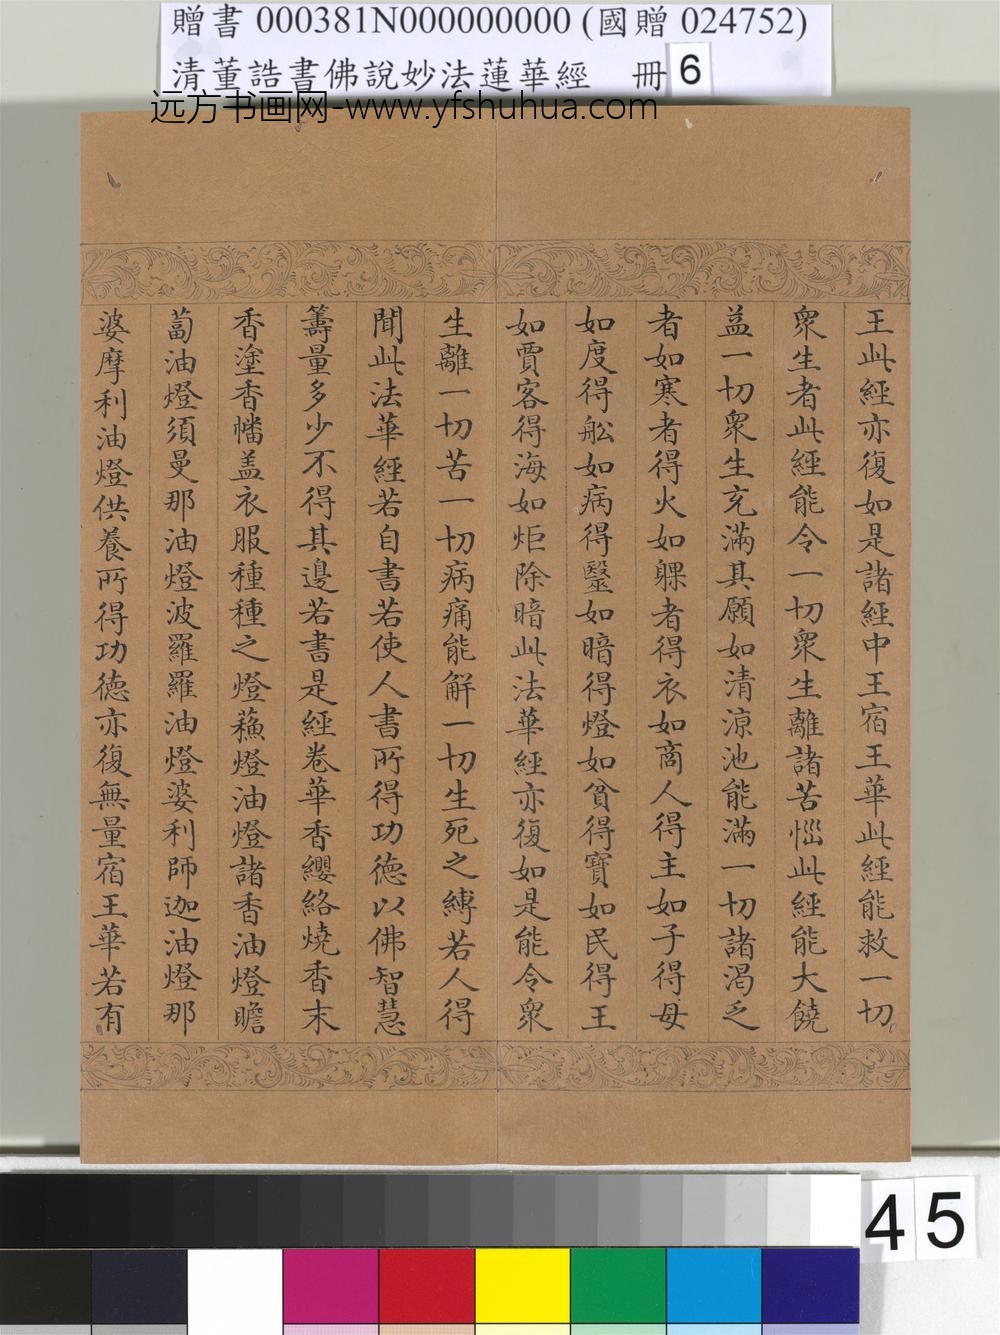 贈書 000381N000000000 (國贈 024752)
清董誥書佛說妙法蓮華經 冊 6
远方书画网-www.yfshuhua.com
王此經亦復如是諸經中王宿王華此經能救一切
衆生者此經能令一切衆生離諸苦惱此經能大饒
益一切衆生充滿其願如清涼池能滿一切諸渴乏
者如寒者得火如躶者得衣如商人得主如子得母
如度得舩如病得毉如暗得燈如貧得寶如民得王
如賈客得海如炬除暗此法華經亦復如是能令衆
生離一切苦一切病痛能解一切生死之縛若人得
聞此法華經若自書若使人書所得功德以佛智慧
籌量多少不得其邊若書是經卷華香纓絡燒香末
香塗香幡盖衣服種種之燈蘓燈油燈諸香油燈瞻
蔔油燈須曼那油燈波羅羅油燈婆利師迦油燈那
婆摩利油燈供養所得功德亦復無量宿王華若有
45